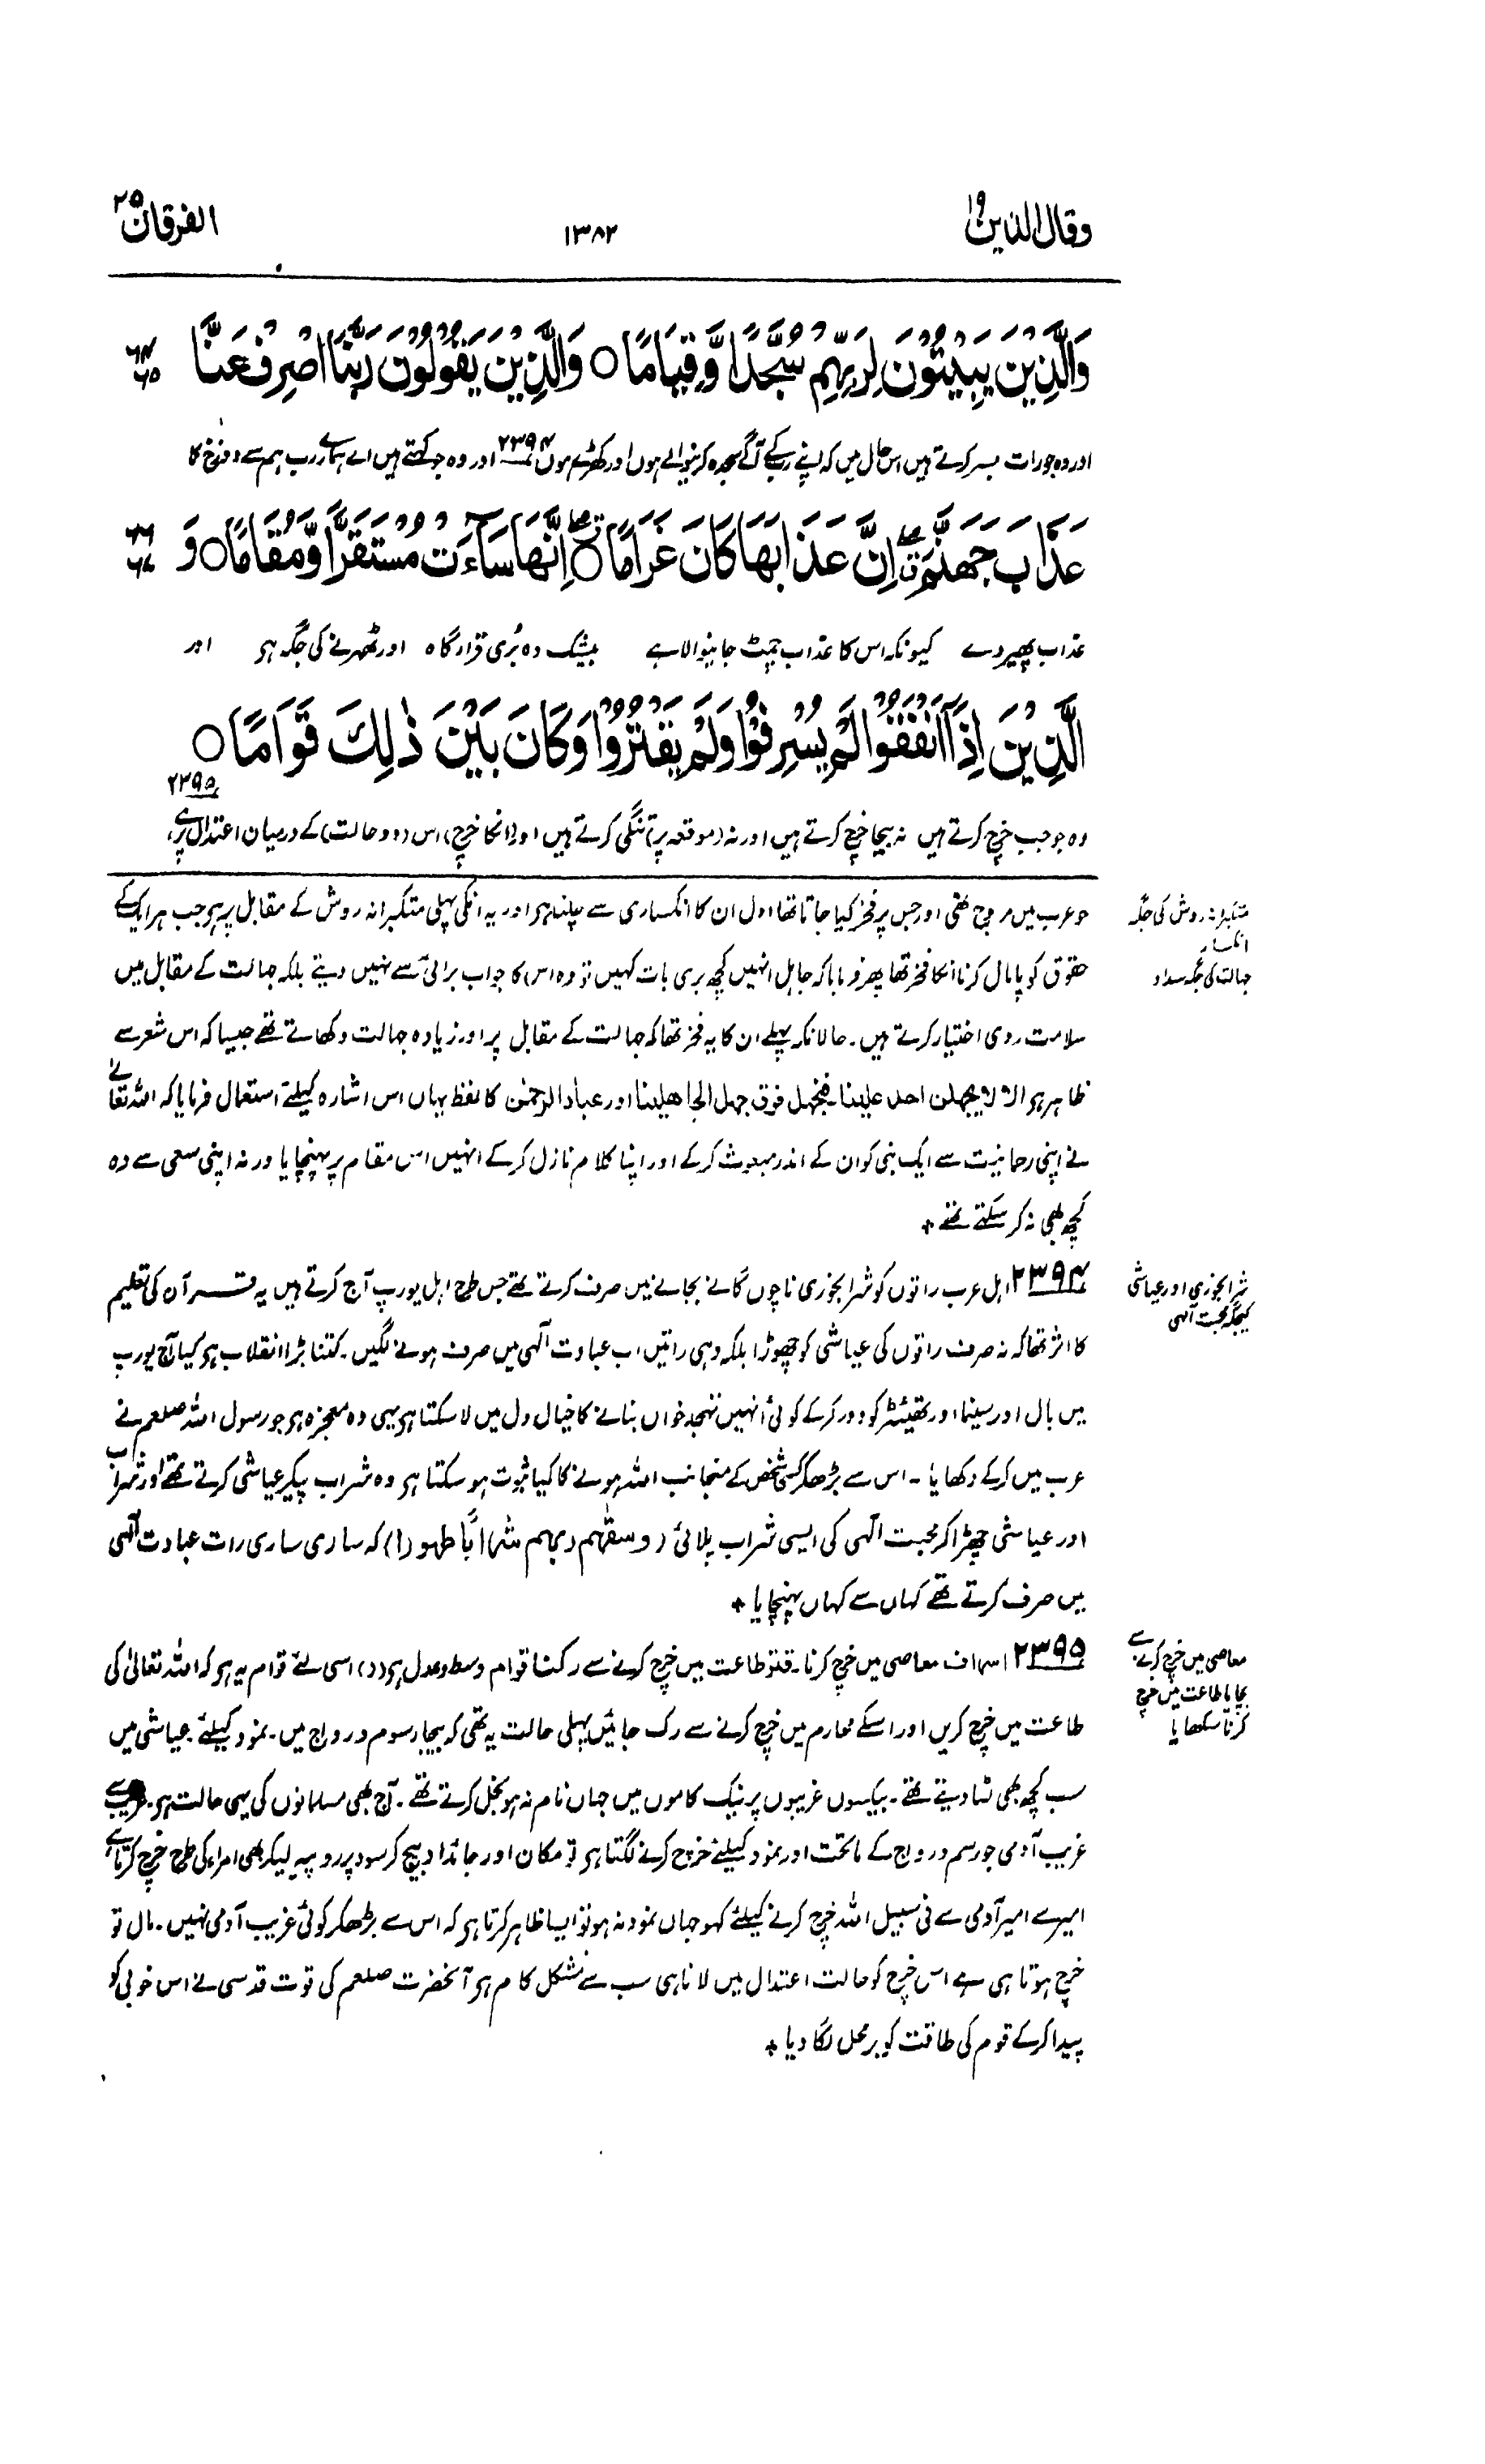 وقال الذین ۱۹
۱۳۸۲
الفرقان ۲۵
وَالَّذِيْنَ يَبِيْتُوْنَ لِرَبِّهِمْ سُجَّدًا وَّقِيَامًا ○ وَالَّذِيْنَ يَقُوْلُوْنَ رَبَّنَا اصْرِفْ عَنَّا
۶۴
۶۵
اور وہ جو رات بسر کرتے ہیں اس حال میں کہ اپنے رب کے آگے سجدہ کرنیوالے ہوں اور کھڑے ہوں ۲۳۹۴ اور وہ جو کہتے ہیں اے ہمارے رب ہم سے دوزخ کا
عَذَابَ جَهَنَّمَ ۖ اِنَّ عَذَابَهَا كَانَ غَرَامًا ○ اِنَّهَا سَآءَتْ مُسْتَقَرًّا وَّمُقَامًا ○ وَ
۶۶
۶۷
عذاب پھیر دے کیونکہ اس کا عذاب چمٹ جانیوالا ہے بیشک وہ بُری قرار گاہ اور ٹھہرنے کی جگہ ہو اور
الَّذِيْنَ اِذَآ اَنْفَقُوْا لَمْ يُسْرِفُوْا وَلَمْ يَقْتُرُوْا وَكَانَ بَيْنَ ذٰلِكَ قَوَامًا ○
۲۳۹۵
وہ جو جب خرچ کرتے ہیں نہ بیجا خرچ کرتے ہیں اور نہ (موقعہ پر) تنگی کرتے ہیں اور (انکا خرچ) اس (دو حالت) کے درمیان اعتدال پر ہے
جو عرب میں مروج تھی اور جس پر فخر کیا جاتا تھا اول ان کا انکساری سے چلنا ہو اور یہ انکی پہلی متکبرانہ روش کے مقابل پر ہو جب ہر ایک کے
حقوق کو پامال کرنا انکا فخر تھا پھر فرمایا کہ جاہل انہیں کچھ بری بات کہیں تو وہ اس کا جواب برائی سے نہیں دیتے بلکہ جہالت کے مقابل میں
سلامت روی اختیار کرتے ہیں۔ حالانکہ پہلے ان کا یہ فخر تھا کہ جہالت کے مقابل پر اور زیادہ جہالت دکھاتے تھے جیسا کہ اس شعر سے
ظاہر ہو الا لا یجھلن احد علینا۔ فنجھل فوق جھل الجاھلینا اور عباد الرحمٰن کا لفظ یہاں اس اشارہ کیلئے استعمال فرمایا کہ اللہ تعالےٰ
نے اپنی رحمانیت سے ایک نبی کو ان کے اندر مبعوث کرکے اور اپنا کلام نازل کرکے انہیں اس مقام پر پہنچایا ورنہ اپنی سعی سے وہ
کچھ بھی نہ کر سکتے تھے ٭
متکبرانہ روش کی جگہ
انکسار
جہالت کی جگہ سداد
۲۳۹۴ اہل عرب راتوں کو شرابخوری ناچوں گانے بجانے میں صرف کرتے تھے جس طرح اہل یورپ آج کرتے ہیں یہ قرآن کی تعلیم
کا اثر تھا کہ نہ صرف راتوں کی عیاشی کو چھوڑا بلکہ وہی راتیں اب عبادت الٰہی میں صرف ہونے لگیں۔ کتنا بڑا انقلاب ہو کیا آج یورپ
میں بال اور سینما اور تھیئٹر کو دور کرکے کوئی انہیں تہجد خواں بنانے کا خیال دل میں لا سکتا ہو یہی وہ معجزہ ہو جو رسول اللہ صلعم نے
عرب میں کرکے دکھایا۔ اس سے بڑھکر کسی شخص کے منجانب اللہ ہونے کا کیا ثبوت ہو سکتا ہو وہ شراب پیکر عیاشی کرتے تھے اور شراب
اور عیاشی چھڑا کر محبت الٰہی کی ایسی شراب پلائی (وسقٰھم ربھم شرابًا طھورا) کہ ساری ساری رات عبادت الٰہی
میں صرف کرتے تھے کہاں سے کہاں پہنچایا ٭
شرابخوری اور عیاشی
کیجگہ محبت الٰہی
۲۳۹۵ اسراف معاصی میں خرچ کرنا۔ قتر طاعت میں خرچ کرنے سے رکنا قوام وسط و عدل ہو (د) اسی لئے قوام یہ ہو کہ اللہ تعالیٰ کی
طاعت میں خرچ کریں اور اسکے محارم میں خرچ کرنے سے رک جائیں پہلی حالت یہ تھی کہ بیجا رسوم و رواج میں۔ نمود کیلئے عیاشی میں
سب کچھ بھی لٹا دیتے تھے۔ بیکسوں غریبوں پر نیک کاموں میں جہاں نام نہ ہو بخل کرتے تھے۔ آج بھی مسلمانوں کی یہی حالت ہو۔ غریب سے
غریب آدمی جو رسم و رواج کے ماتحت اور نمود کیلئے خرچ کرنے لگتا ہو تو مکان اور جائداد بیچ کر سود پر روپیہ لیکر بھی امراء کی طرح خرچ کرتا ہے
امیر سے امیر آدمی سے فی سبیل اللہ خرچ کرنے کیلئے کہو جہاں نمود نہ ہو تو ایسا ظاہر کرتا ہو کہ اس سے بڑھکر کوئی غریب آدمی نہیں۔ مال تو
خرچ ہوتا ہی ہے اس خرچ کو حالت اعتدال میں لانا ہی سب سے مشکل کام ہو آنحضرت صلعم کی قوت قدسی نے اس خوبی کو
پیدا کرکے قوم کی طاقت کو بر محل لگا دیا ٭
معاصی میں خرچ کرنے سے
بچایا طاعت میں خرچ
کرنا سکھایا